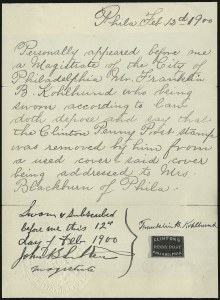 Phila Feb 12th 1900
Personally appeared before me
a Magistrate of the City of
Philadelphia Mr. Franklin
B. Kohlhund who being
sworn according to law
doth depose and say that
the Clinton Penny Post stamp
was removed by him from
a used cover said cover
being addressed to Mrs.
Blackburn of Phila.
Sworn & Subscribed
before me this 12th
day of Feby 1900
John
magistrate
Franklin B. Kohlhund
CLINTON'S
PENNY POST
PHILADELPHIA